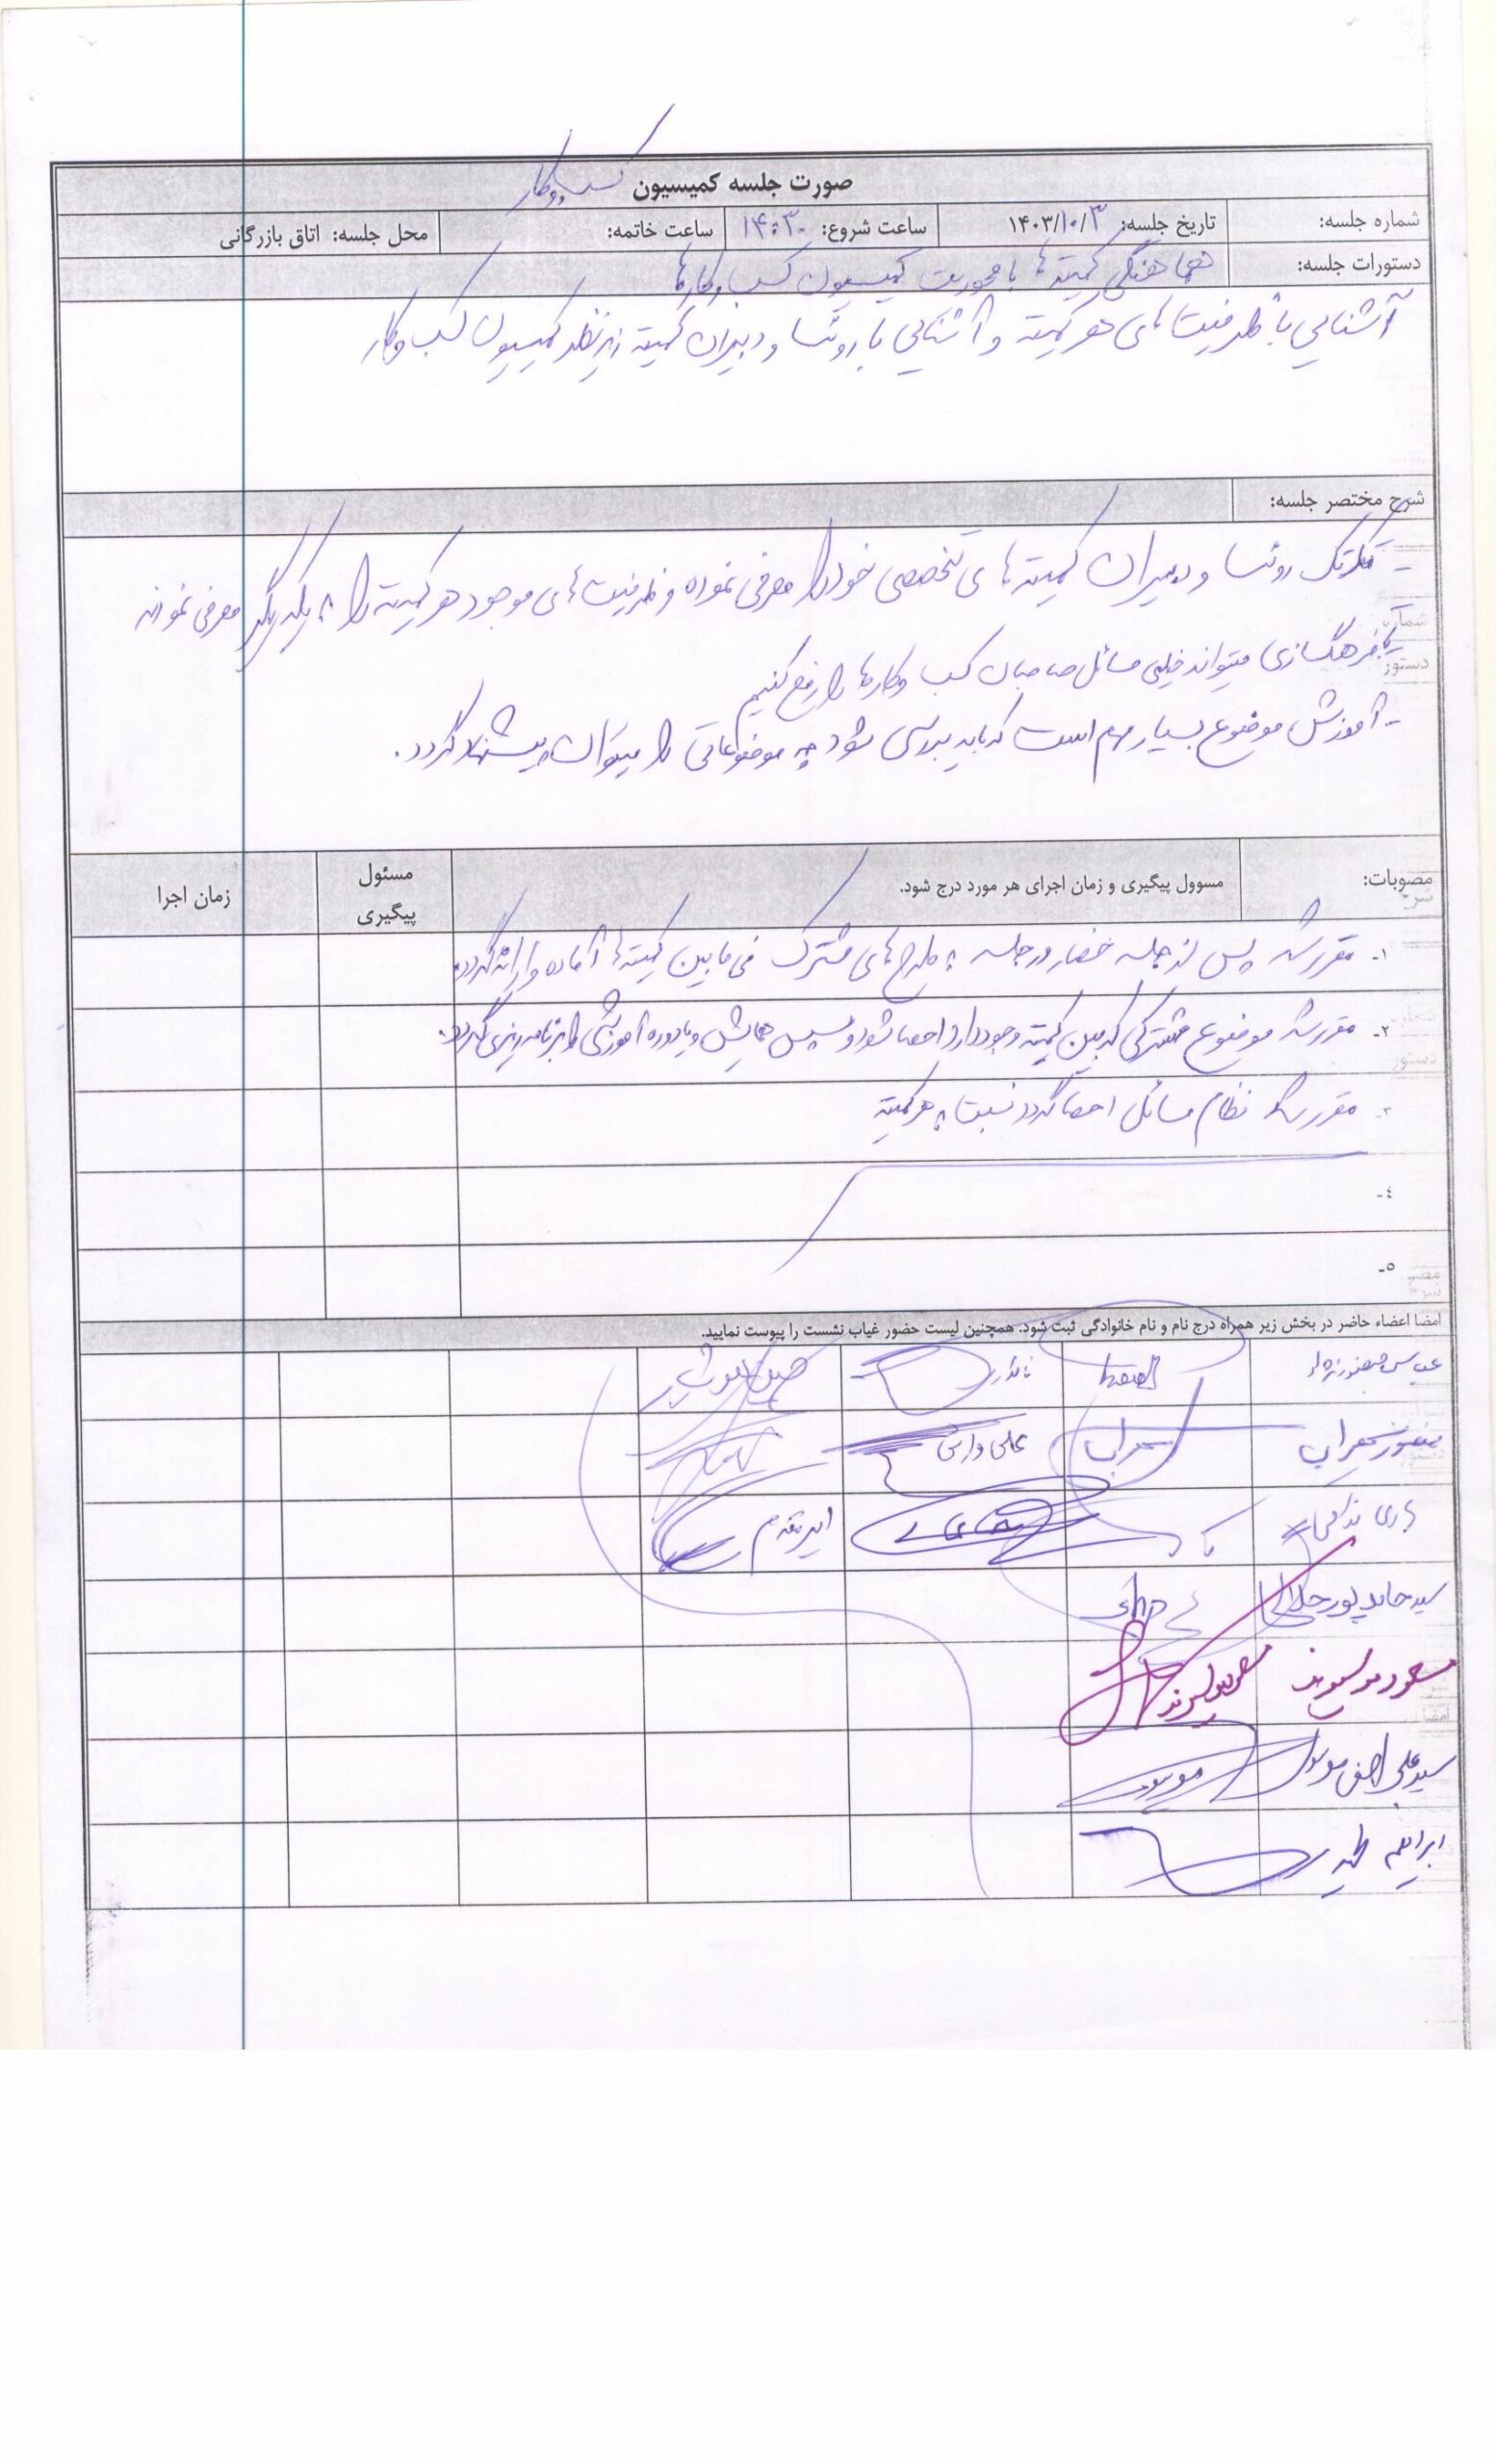 صورت جلسه کمیسیون کسب و کار
شماره جلسه: تاریخ جلسه: ۱۴۰۳/۱۰/۳ ساعت شروع: ۱۴:۳۰ ساعت خاتمه: محل جلسه: اتاق بازرگانی
دستورات جلسه: هماهنگی کمیته ها با محوریت کمیسیون کسب و کارها
آشنایی با ظرفیت های هر کمیته و آشنایی با روئسا و دبیران کمیته زیر نظر کمیسیون کسب و کار
شرح مختصر جلسه:
- تک تک روئسا و دبیران کمیته های تخصصی خود را معرفی نموده و ظرفیت های موجود هر کمیته را به یکدیگر معرفی نمودند
فرهنگسازی میتواند خیلی مسائل صاحبان کسب وکارها را رفع کنیم
- آموزش موضوع بسیار مهم است که باید بررسی شود چه موضوعاتی را میتوان پیشنهاد کردد.
مصوبات: مسوول پیگیری و زمان اجرای هر مورد درج شود. مسئول پیگیری زمان اجرا
۱- مقرر شد پس از جلسه حضار در جلسه به طرح های مشترک فی مابین کمیته ها آماده و ارائه گردد
۲- مقرر شد موضوع مشترکی که بین کمیته وجود دارد احصا شود و سپس همایش و یا دوره آموزشی را برنامه ریزی گردد.
۳- مقرر شد نظام مسائل احصا گردد نسبت به هر کمیته
٤-
٥-
امضا اعضاء حاضر در بخش زیر همراه درج نام و نام خانوادگی ثبت شود. همچنین لیست حضور غیاب نشست را پیوست نمایید.
عباس
منصور سهراب سهراب علی وارسی
هادی
سید حامد پور جلالی
مسعود
سید علی اصغر موسوی موسوی
ابراهیم